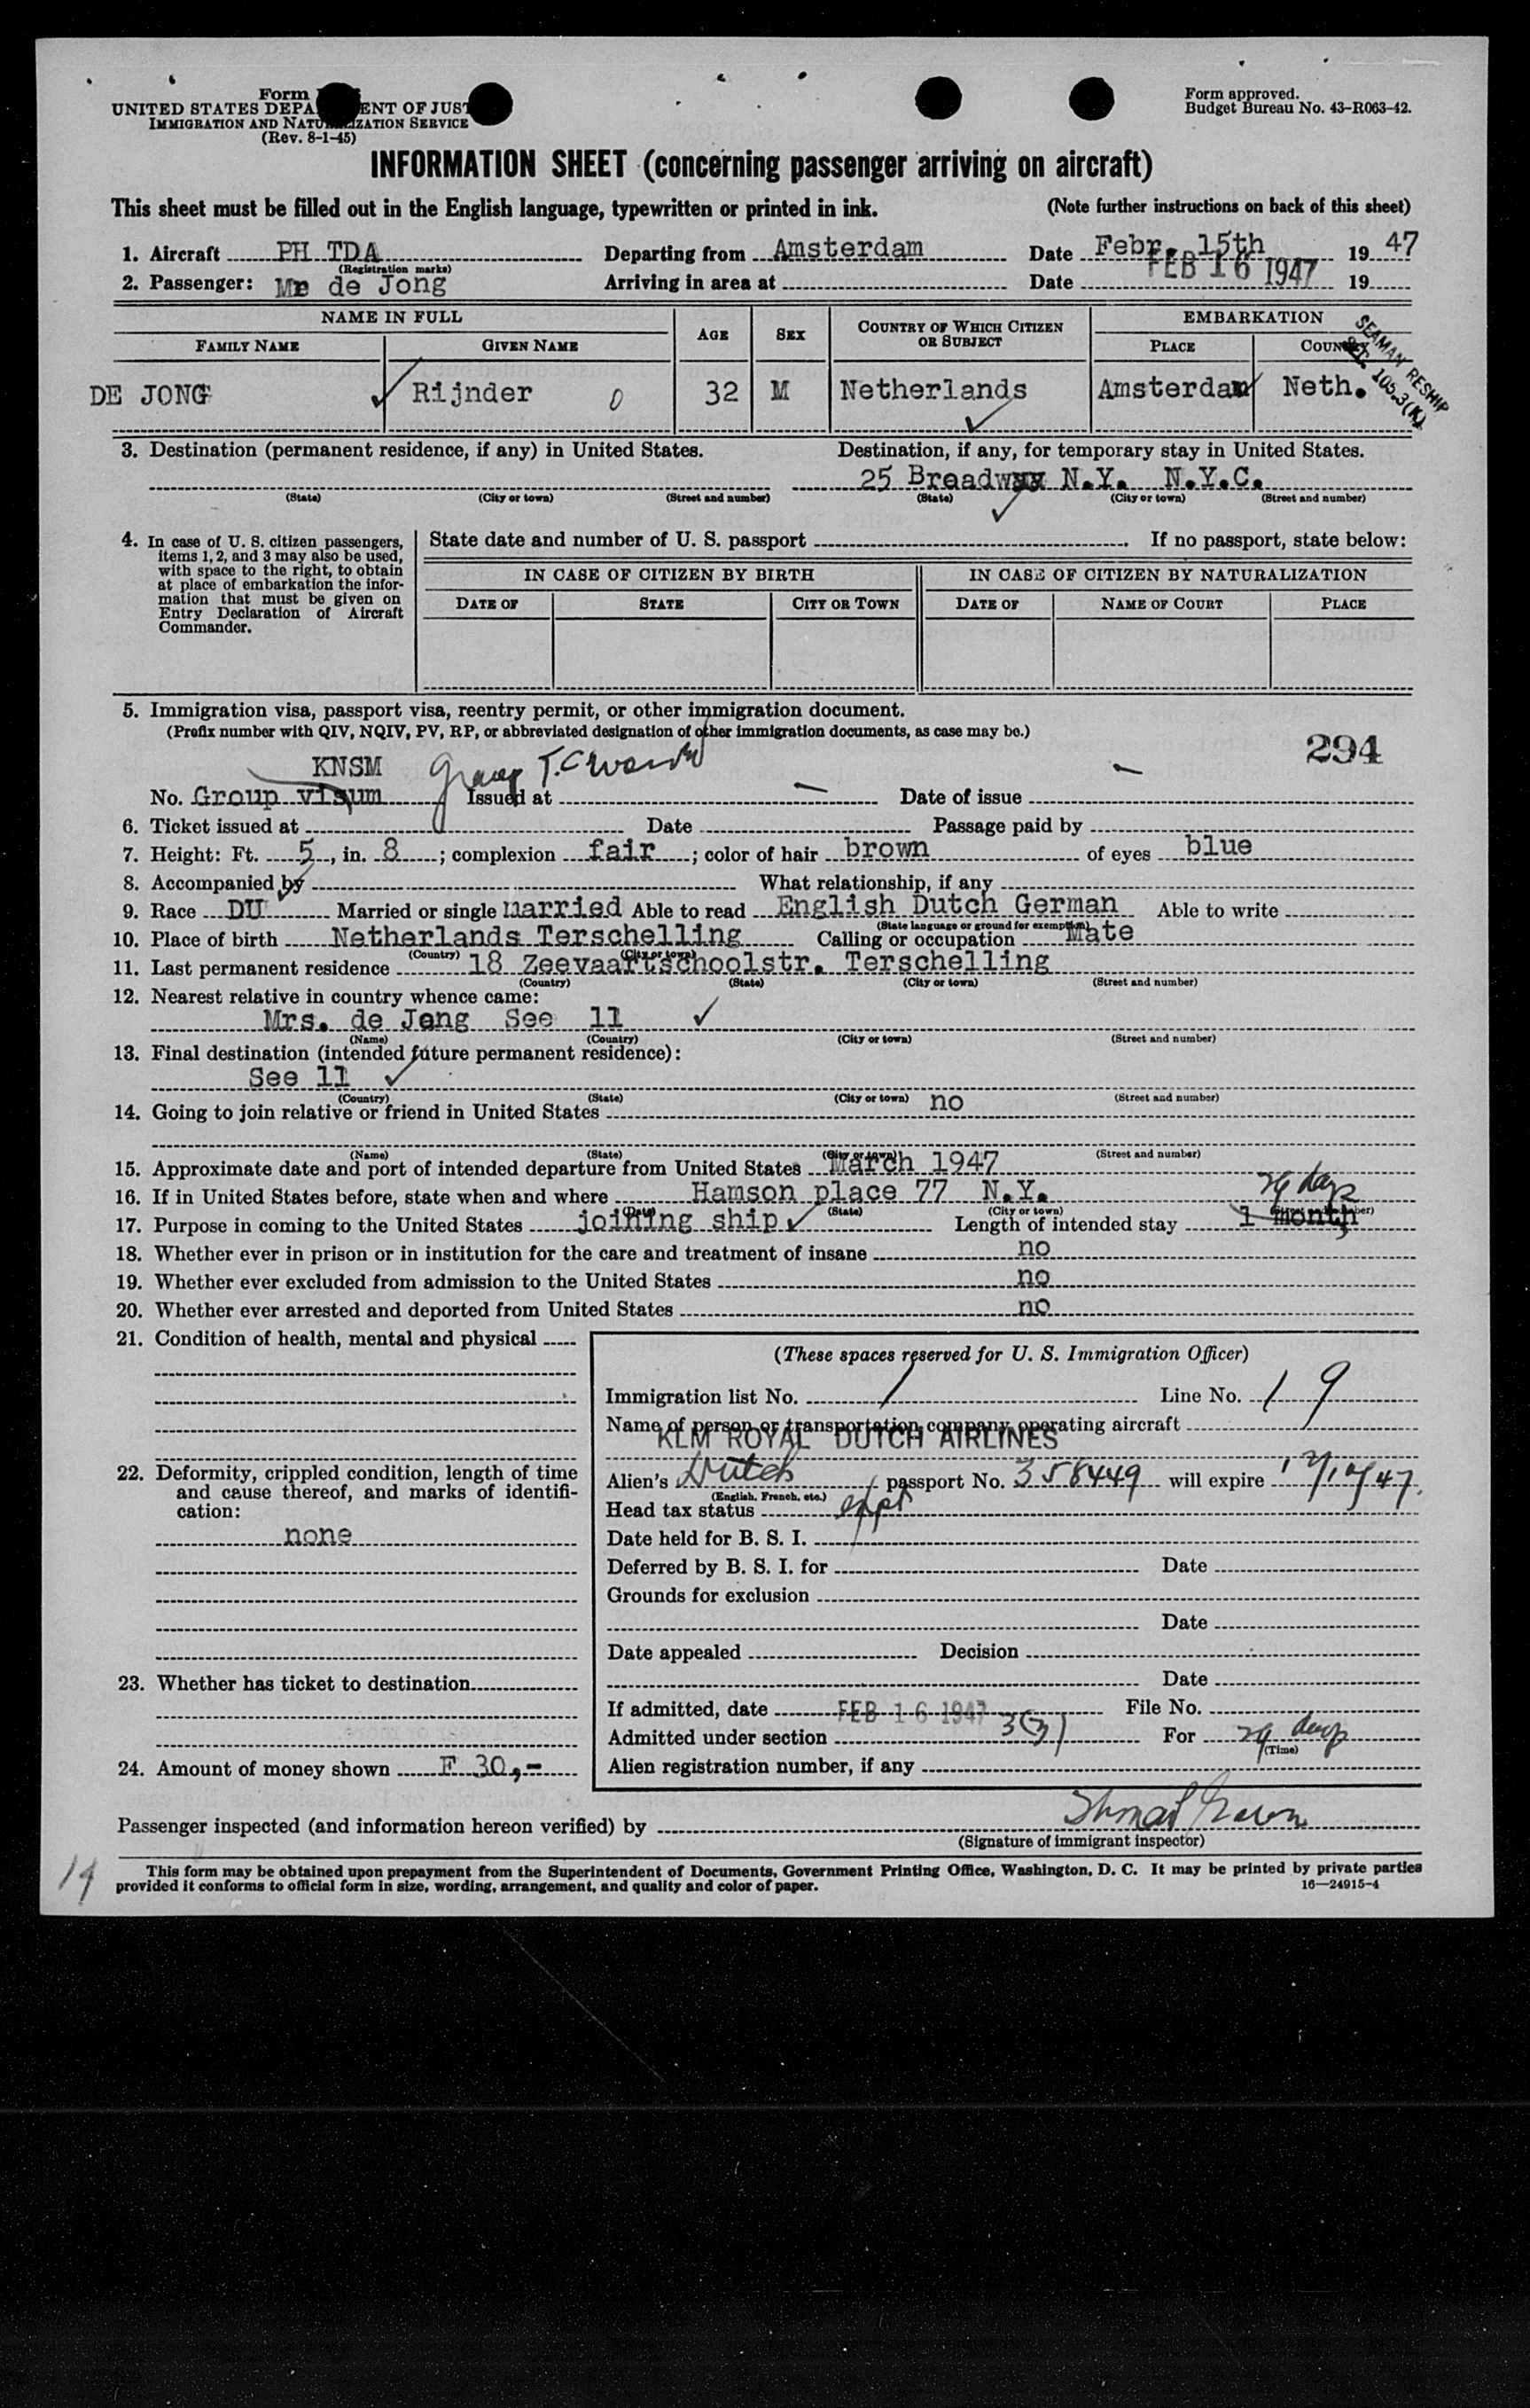 Form
UNITED STATES DEPA ENT OF JUST
IMMIGRATION AND NATU IZATION SERVICE
(Rev. 8-1-45)
Form approved.
Budget Bureau No. 43-R063-42.
INFORMATION SHEET (concerning passenger arriving on aircraft)
This sheet must be filled out in the English language, typewritten or printed in ink. (Note further instructions on back of this sheet)
1. Aircraft PH TDA Departing from Amsterdam Date Febr. 15th 19 47
(Registration marks)
2. Passenger: Mr de Jong Arriving in area at Date FEB 16 1947 19
NAME IN FULL AGE SEX COUNTRY OF WHICH CITIZEN OR SUBJECT EMBARKATION
FAMILY NAME GIVEN NAME PLACE COUNTRY
SEAMAN RESHIP
SEC. 105.3(K)
DE JONG Rijnder 0 32 M Netherlands Amsterdam Neth.
3. Destination (permanent residence, if any) in United States. Destination, if any, for temporary stay in United States.
25 Broadway N.Y. N.Y.C.
(State) (City or town) (Street and number) (State) (City or town) (Street and number)
4. In case of U. S. citizen passengers,
items 1, 2, and 3 may also be used,
with space to the right, to obtain
at place of embarkation the infor-
mation that must be given on
Entry Declaration of Aircraft
Commander.
State date and number of U. S. passport . If no passport, state below:
IN CASE OF CITIZEN BY BIRTH IN CASE OF CITIZEN BY NATURALIZATION
DATE OF STATE CITY OR TOWN DATE OF NAME OF COURT PLACE
5. Immigration visa, passport visa, reentry permit, or other immigration document.
(Prefix number with QIV, NQIV, PV, RP, or abbreviated designation of other immigration documents, as case may be.)
294
KNSM Group
No. Group visum Issued at Date of issue
6. Ticket issued at Date Passage paid by
7. Height: Ft. 5, in. 8; complexion fair; color of hair brown of eyes blue
8. Accompanied by What relationship, if any
9. Race DU Married or single Married Able to read English Dutch German Able to write
(State language or ground for exemption)
10. Place of birth Netherlands Terschelling Calling or occupation Mate
(Country) (City or town)
11. Last permanent residence 18 Zeevaartschoolstr. Terschelling
(Country) (State) (City or town) (Street and number)
12. Nearest relative in country whence came:
Mrs. de Jong See 11
(Name) (Country) (City or town) (Street and number)
13. Final destination (intended future permanent residence):
See 11
(Country) (State) (City or town) (Street and number)
14. Going to join relative or friend in United States no
(Name) (State) (City or town) (Street and number)
15. Approximate date and port of intended departure from United States March 1947
16. If in United States before, state when and where Hamson place 77 N.Y.
(Date) (State) (City or town) (Street and number)
29 days
17. Purpose in coming to the United States joining ship Length of intended stay 1 month
18. Whether ever in prison or in institution for the care and treatment of insane no
19. Whether ever excluded from admission to the United States no
20. Whether ever arrested and deported from United States no
21. Condition of health, mental and physical
22. Deformity, crippled condition, length of time
and cause thereof, and marks of identifi-
cation:
none
23. Whether has ticket to destination
24. Amount of money shown F 30,-
(These spaces reserved for U. S. Immigration Officer)
Immigration list No. 1 Line No. 19
Name of person or transportation company operating aircraft
KLM ROYAL DUTCH AIRLINES
Alien's Dutch passport No. 358449 will expire
(English, French, etc.)
Head tax status expt
Date held for B. S. I.
Deferred by B. S. I. for Date
Grounds for exclusion
Date
Date appealed Decision
Date
If admitted, date FEB 16 1947 File No.
Admitted under section 3(3) For 29 days
(Time)
Alien registration number, if any
Passenger inspected (and information hereon verified) by
(Signature of immigrant inspector)
14
This form may be obtained upon prepayment from the Superintendent of Documents, Government Printing Office, Washington, D. C. It may be printed by private parties
provided it conforms to official form in size, wording, arrangement, and quality and color of paper.
16—24915-4